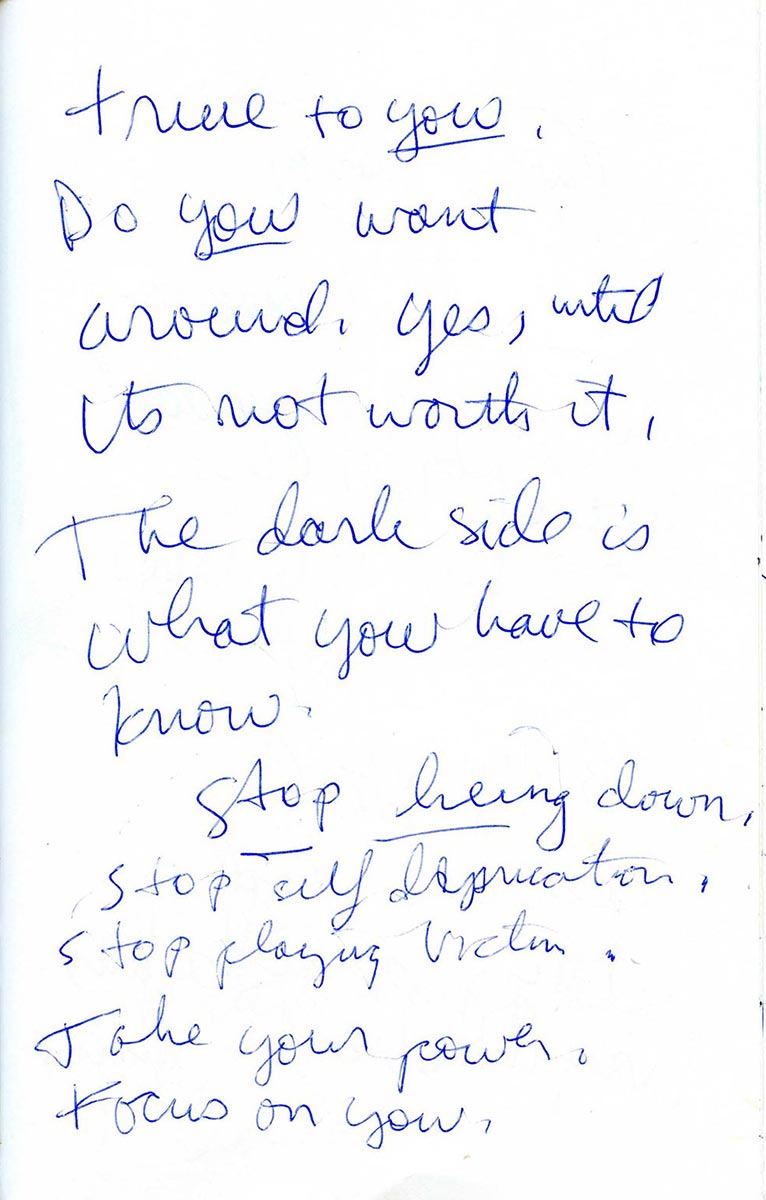 true to you.
Do you want
around. yes, until
its not worth it,
The dark side is
what you have to
know.
stop being down,
stop self deprication.
stop playing victim.
Take your power.
Focus on you.